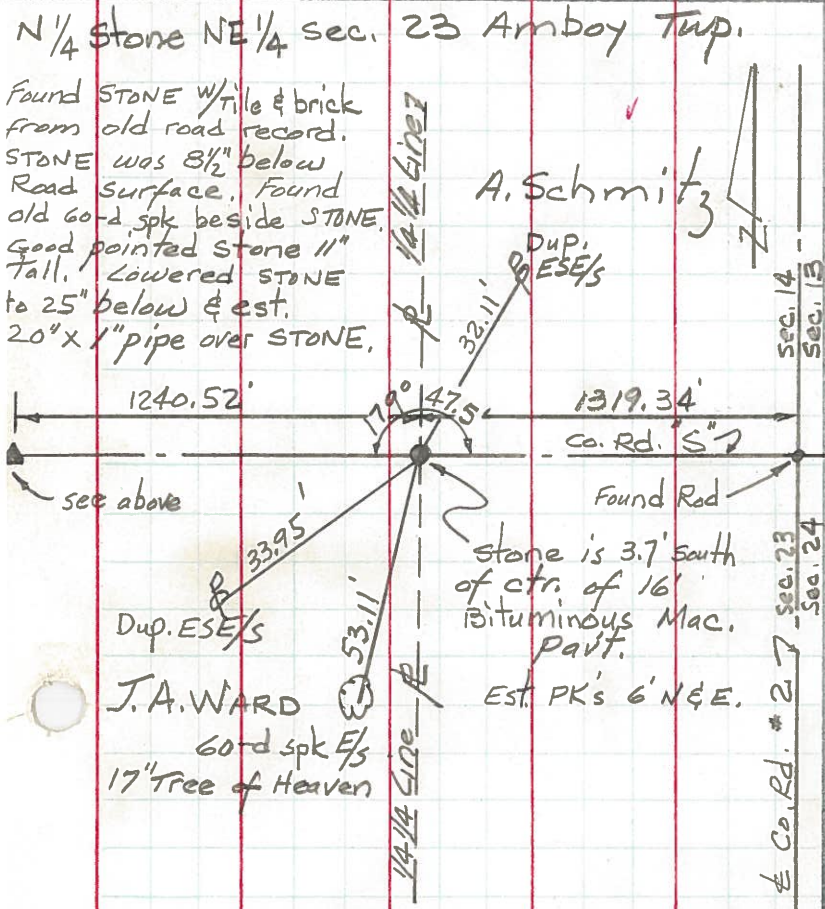 N 1/4 Stone NE 1/4 sec. 23 Amboy Twp.
Found STONE W/Tile & brick
from old road record.
STONE was 8½" below
Road Surface. Found
old 60-d spk beside STONE.
Good pointed Stone 11"
Tall. Lowered STONE
to 25" below & est.
20" X 1" pipe over STONE.
¼ ¼ Line
A. Schmitz
N
Dup.
ESE/s
32.11'
Sec. 14
Sec. 13
1240.52'
179° 47.5'
1319.34'
Co. Rd. "S"
see above
Found Rod
33.95'
Dup. ESE/s
53.11'
Stone is 3.7' South
of ctr. of 16'
Bituminous Mac.
Pav't.
Est. PK's 6' N & E.
Sec. 23
Sec. 24
J. A. WARD
60-d spk E/s
17" Tree of Heaven
¼ ¼ Line
℄ Co. Rd. # 27